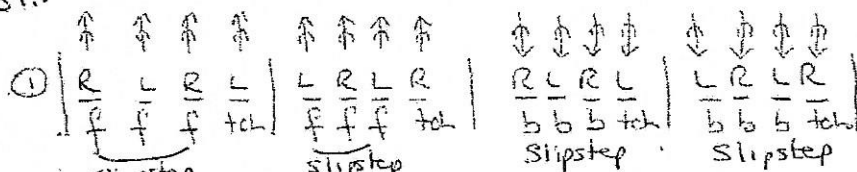 ① | R L R L | L R L R | R L R L | L R L R
f f f tch f f f tch b b b tch b b b tch
slipstep slipstep slipstep slipstep